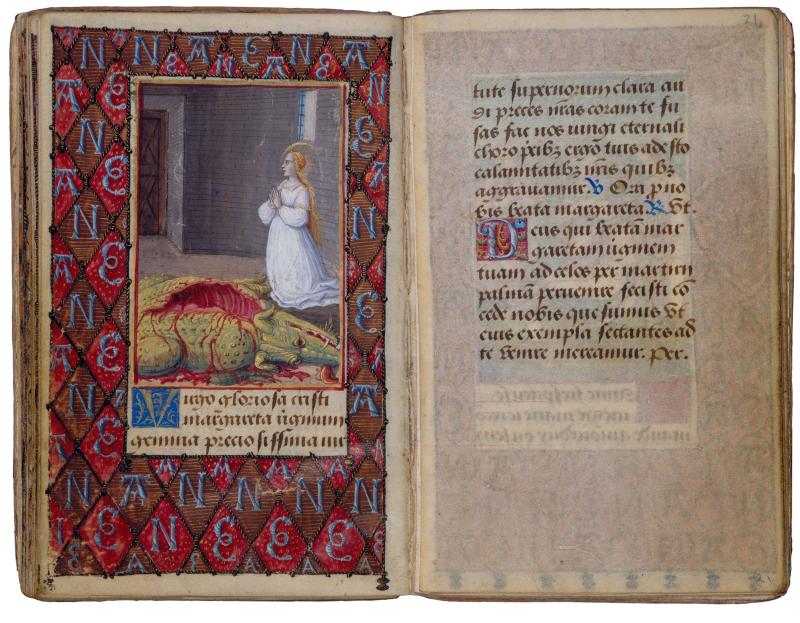 Virgo gloriosa cristi
margareta v̄ginum
gemma preciosissima vir
21.
tute supernorum clara au
di preces nr̄as coram te fu
sas fac nos iungi eternali
choro p̄cibꝫ ergo tuis adesto
calamitatibꝫ nr̄is quibꝫ
aggrauamur. V Ora p̄ no
bis beata margareta. R Vt.
Deus qui beatam mar
garetam v̄ginem
tuam ad celos per martirii
palmam peruenire fecisti cō
cede nobis que sumus vt
eius exempla sectantes ad
te venire mereamur. Per.